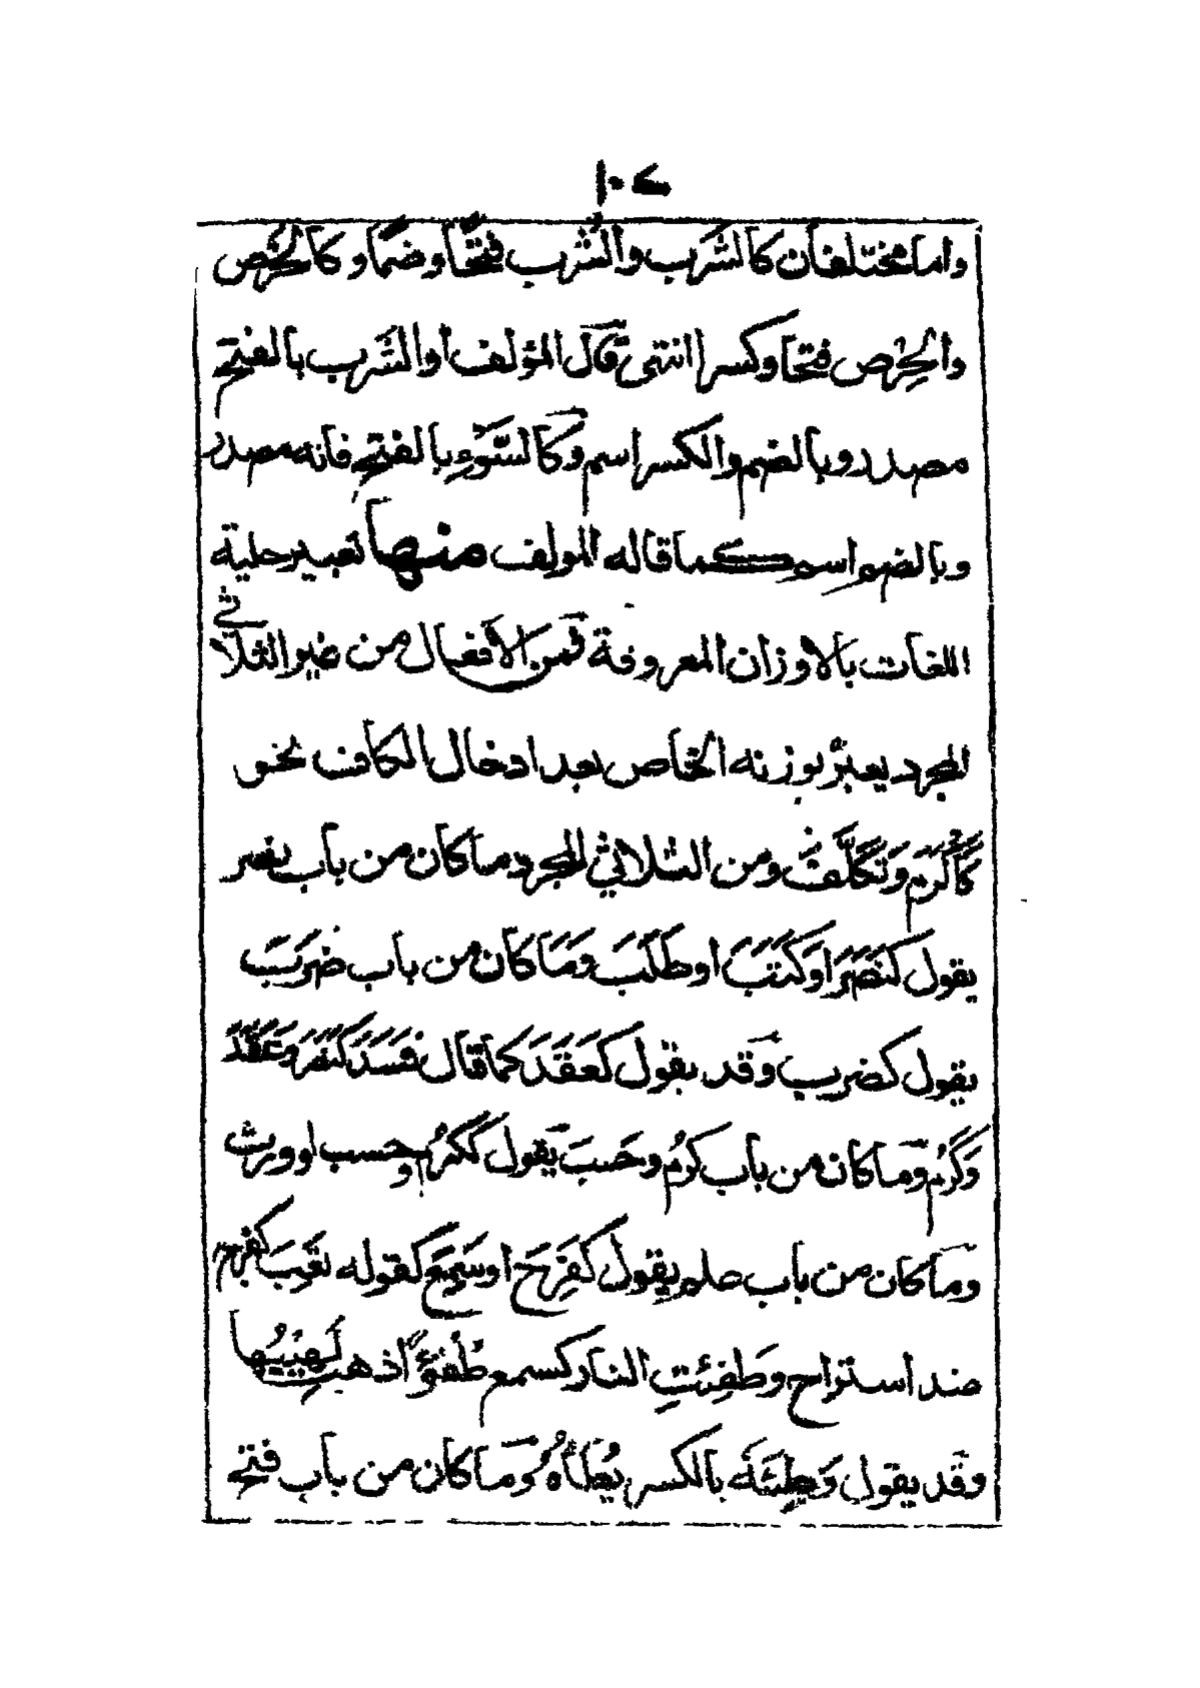 واما مختلفان كالشَرب والشُرب فتحًا وضمًا وكالخَرص
والخِرص فتحًا وكسرا انتهى قال المؤلف او الشَرب بالفتح
مصدر وبالضم والكسر اسم وكالسَّوْءِ بالفتح فانه مصدر
وبالضم اسم كما قاله المولف منها تعبير حلية
اللغات بالاوزان المعروفة فمن الافعال من غير الثلاثي
المجرد يعبّر بوزنه الخاص بعد ادخال الكاف نحو
كَأَكْرَمَ وَتَكَلَّفَ ومن الثلاثي المجرد ما كان من باب نصر
يقول كنَصَرَ او كَتَبَ او طَلَبَ وَمَا كان من باب ضَرَبَ
يقول كضرب وقد يقول كعَقَدَ كما قال فَسَدَ كَنَصَرَ وعَقَدَ
وَكَرُمَ وما كان من باب كرُم وحَسِبَ يقول ككرُم وحسب او ورث
وما كان من باب علم يقول كفَرِحَ او سَمِعَ كقوله تَعِبَ كفرح
ضد استراح وطَفِئَتِ النار كسمع طُفُوْءًا ذهب لَهِيْبُها
وقد يقول وَطِئَهُ بالكسر يَطَأُهُ وما كان من باب فتح